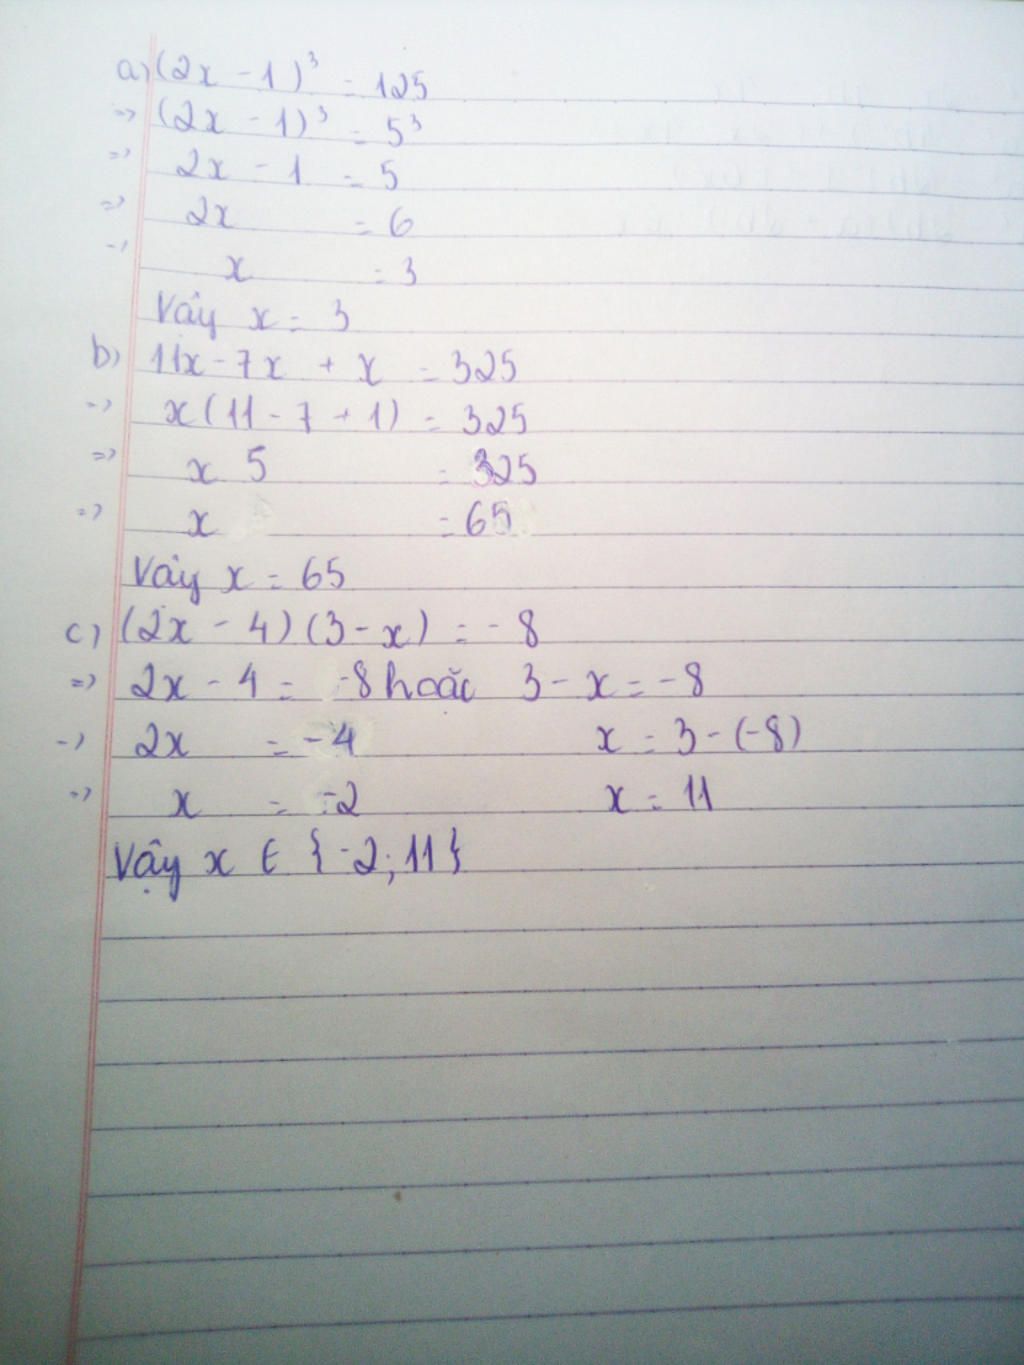 a) (2x - 1)³ = 125
=> (2x - 1)³ = 5³
=> 2x - 1 = 5
=> 2x = 6
=> x = 3
Vậy x = 3
b) 11x - 7x + x = 325
=> x(11 - 7 + 1) = 325
=> x 5 = 325
=> x = 65
Vậy x = 65
c) (2x - 4) (3 - x) = -8
=> 2x - 4 = -8 hoặc 3 - x = -8
=> 2x = -4 x = 3 - (-8)
=> x = -2 x = 11
Vậy x ∈ {-2; 11}